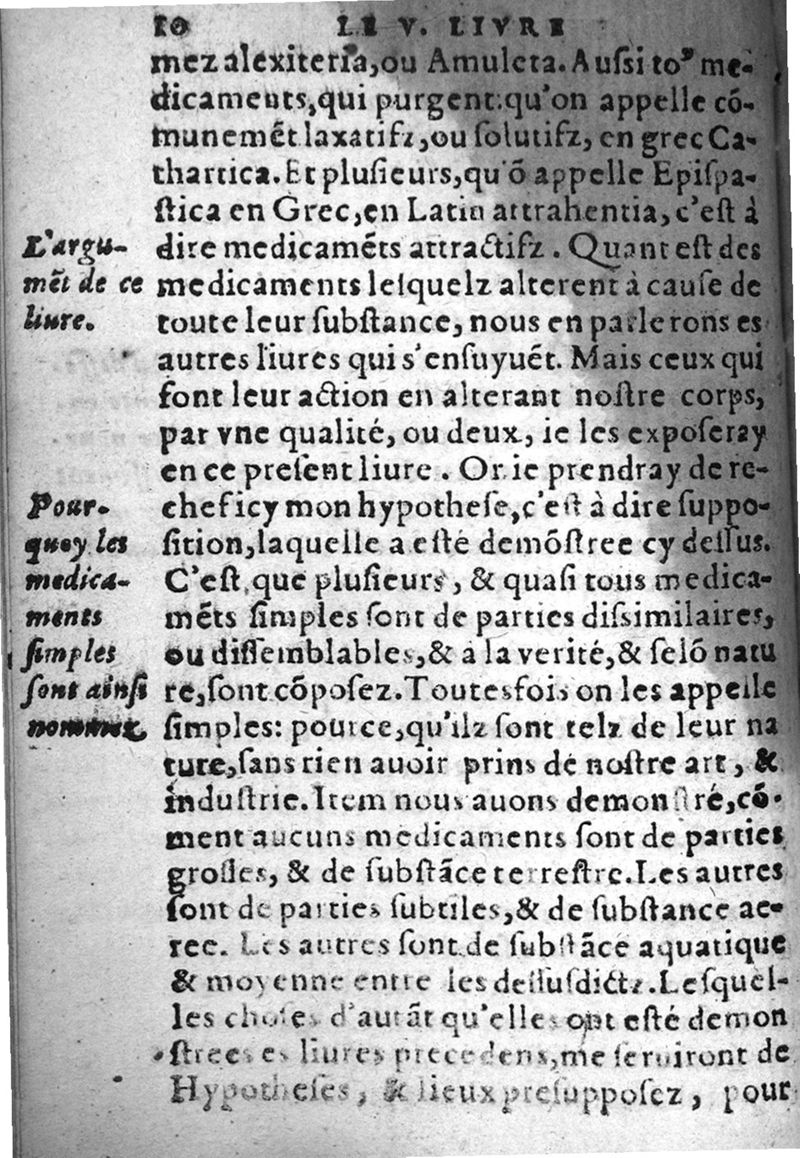 10 LE V. LIVRE
mez alexiteria, ou Amuleta. Auſsi toꝰ me-
dicaments, qui purgent: qu'on appelle cõ-
munemẽt laxatifz, ou ſolutifz, en grec Ca-
thartica. Et pluſieurs, qu'õ appelle Epiſpa-
ſtica en Grec, en Latin attrahentia, c'eſt à
dire medicamẽts attractifz. Quant eſt des
medicaments leſquelz alterent à cauſe de
toute leur ſubſtance, nous en parlerons es
autres liures qui s'enſuyuẽt. Mais ceux qui
font leur action en alterant noſtre corps,
par vne qualité, ou deux, ie les expoſeray
en ce preſent liure. Or ie prendray de re-
chef icy mon hypotheſe, c'eſt à dire ſuppo-
ſition, laquelle a eſté demõſtree cy deſſus.
C'eſt que pluſieurs, & quaſi tous medica-
mẽts ſimples ſont de parties diſsimilaires,
ou diſſemblables, & à la verité, & ſelõ natu
re, ſont cõpoſez. Toutesfois on les appelle
ſimples: pource, qu'ilz ſont telz de leur na
ture, ſans rien auoir prins de noſtre art, &
induſtrie. Item nous auons demonſtré, cõ-
ment aucuns medicaments ſont de parties
groſſes, & de ſubſtãce terreſtre. Les autres
ſont de parties ſubtiles, & de ſubſtance ae-
ree. Les autres ſont de ſubſtãce aquatique
& moyenne entre les deſſuſdictz. Leſquel-
les choſes d'autãt qu'elles ont eſté demon
ſtrees es liures precedens, me ſeruiront de
Hypotheſes, & lieux preſuppoſez, pour
L'argu-
mẽt de ce
liure.
Pour-
quoy les
medica-
ments
ſimples
ſont ainſi
nommez